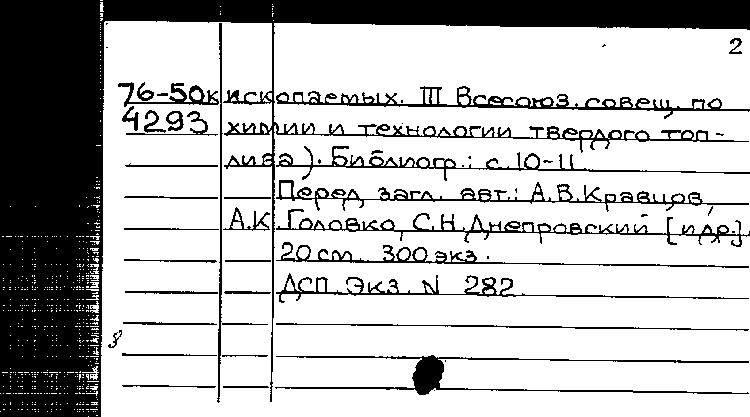 2
76-50к ископаемых. III Всесоюз. совещ. по
4293 химии и технологии твердого топ-
лива). Библиогр.: с. 10-11.
Перед загл. авт.: А.В.Кравцов,
А.К. Головко, С.Н.Днепровский [и др.].
20 см. 300 экз.
ДСП. Экз. N 282.